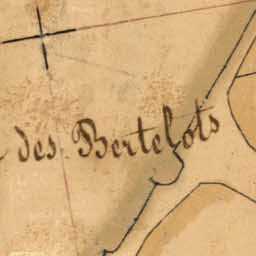 des Bertelots